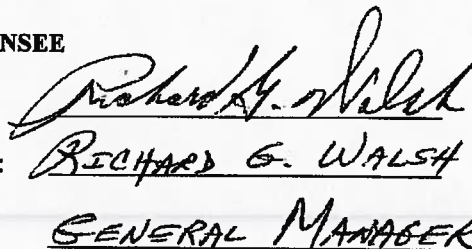 NSEE
Richard G. Walsh
: RICHARD G. WALSH
GENERAL MANAGER